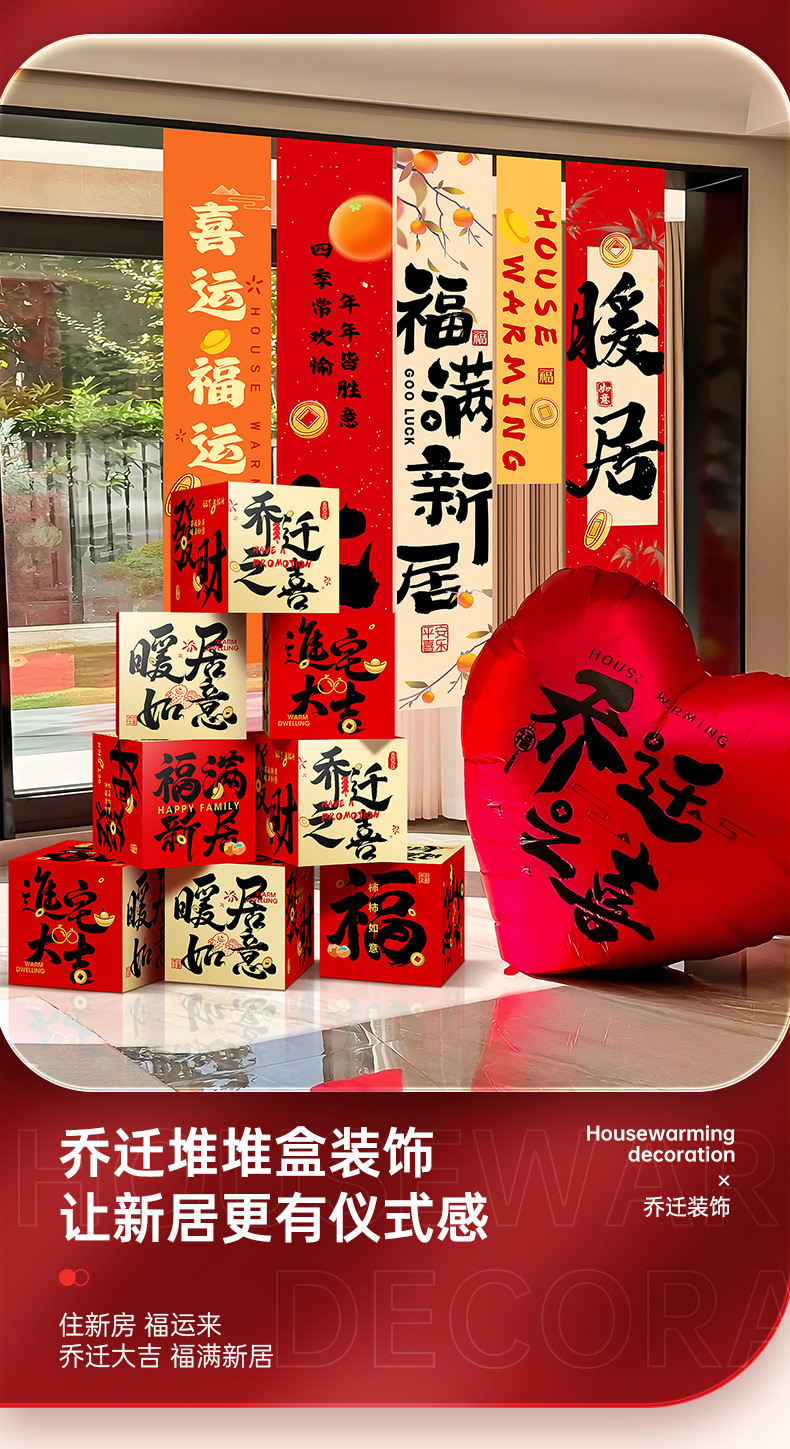 喜运福运
HOUSE WAR
四季常欢愉
年年皆胜意
福满新居
GOO LUCK
平安喜乐
HOUSE
WARMING
福
暖居
如意
發財
GET RICH
乔迁之喜
HAVE A
PROMOTION
暖居如意
WARM
DWELLING
進宅大吉
WARM
DWELLING
福满新居
HAPPY FAMILY
發財
乔迁之喜
HAVE A
PROMOTION
進宅大吉
WARM
DWELLING
暖居
如
暖居如意
WARM
DWELLING
財
福
柿柿如意
HOUSE WARMING
乔迁之喜
乔迁堆堆盒装饰
让新居更有仪式感
Housewarming
decoration
×
乔迁装饰
住新房 福运来
乔迁大吉 福满新居
HOUSEWAR
DECORA